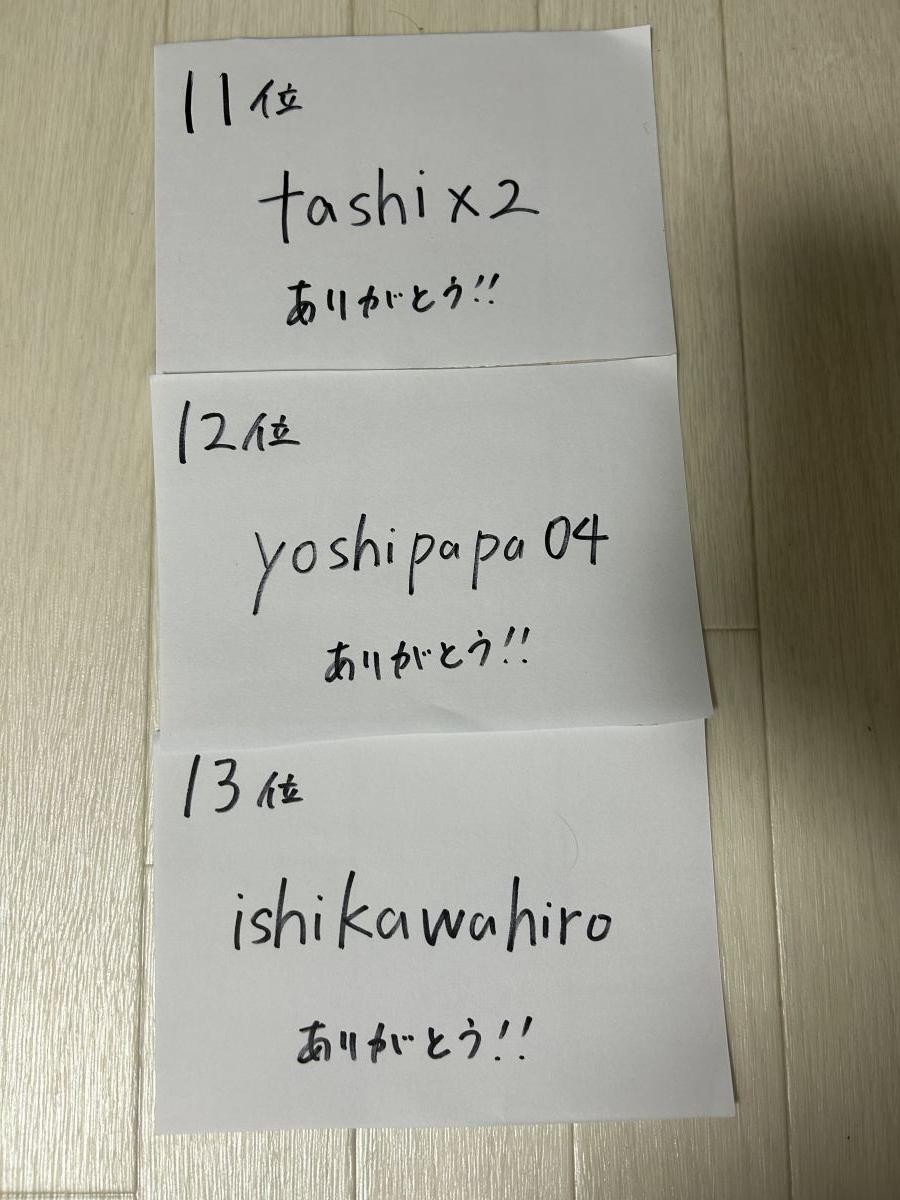 11位
tashix2
ありがとう!!
12位
yoshipapa04
ありがとう!!
13位
ishikawahiro
ありがとう!!